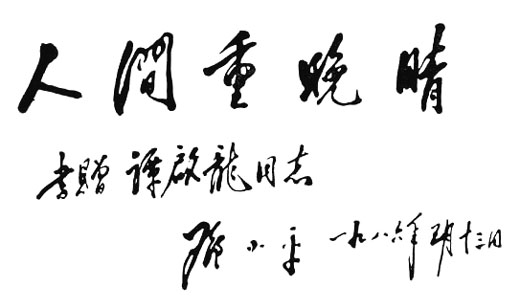 人間重晚晴
書贈 譚啟龍同志
鄧小平 一九八六年 月十三日